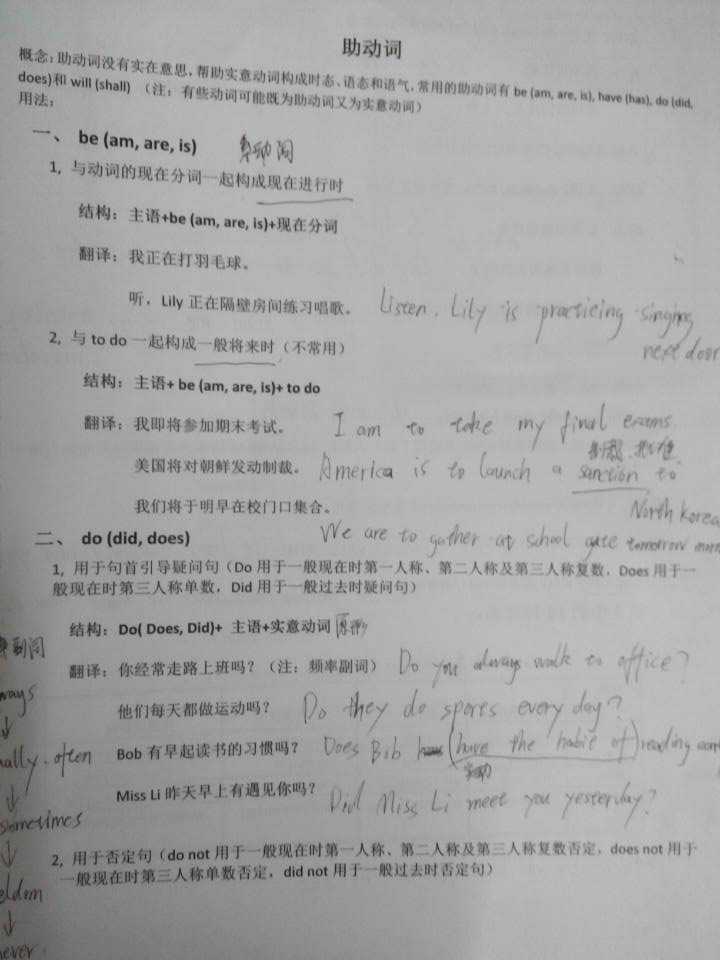 助动词
概念：助动词没有实在意思，帮助实意动词构成时态、语态和语气，常用的助动词有 be (am, are, is), have (has), do (did,
does)和 will (shall) （注：有些动词可能既为助动词又为实意动词）
用法：
一、 be (am, are, is)
1, 与动词的现在分词一起构成现在进行时
结构：主语+be (am, are, is)+现在分词
翻译：我正在打羽毛球。
听，Lily 正在隔壁房间练习唱歌。 Listen, Lily is practicing singing
next door
2, 与 to do 一起构成一般将来时（不常用）
结构：主语+ be (am, are, is)+ to do
翻译：我即将参加期末考试。 I am to take my final exams.
制裁
美国将对朝鲜发动制裁。 America is to launch a sanction to
North Korea
我们将于明早在校门口集合。
We are to gather at school gate tomorrow
二、 do (did, does)
1, 用于句首引导疑问句（Do 用于一般现在时第一人称、第二人称及第三人称复数，Does 用于一
般现在时第三人称单数，Did 用于一般过去时疑问句）
结构：Do( Does, Did)+ 主语+实意动词 原形
翻译：你经常走路上班吗？（注：频率副词） Do you always walk to office?
ways
他们每天都做运动吗？ Do they do sports every day?
ually. often
Bob 有早起读书的习惯吗？ Does Bob (have the habit of) reading
Miss Li 昨天早上有遇见你吗？ Did Miss Li meet you yesterday?
sometimes
2, 用于否定句（do not 用于一般现在时第一人称、第二人称及第三人称复数否定，does not 用于
一般现在时第三人称单数否定，did not 用于一般过去时否定句）
eldom
ever